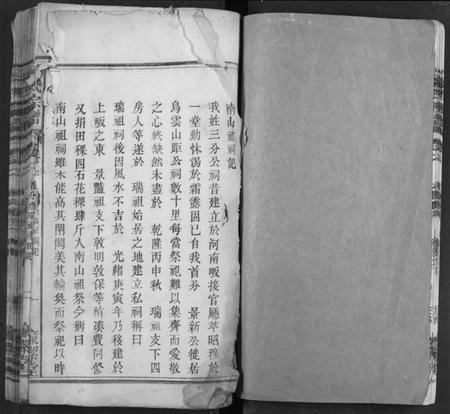 南山祖祠記
我姓三分公祠昔建立於河南畈接官廳萃昭穆於
一堂動怵惕於霜露固已自我首分　景新公徙居
烏雲山距公祠數十里每當祭祀難以集齊而愛敬
之心終缺然未盡於　乾隆丙申秋　瑞祖支下四
房人等遂於　瑞祖始居之地建立私祠稱曰
瑞祖祠後因風水不吉於　光緒庚寅年乃移建於
上畈之東　景豔祖支下敦明敦保等稍湊費同修
又捐田稞四石花稞肆斤人南山祖祭今稱曰
南山祖祠雖未能高其閈閎美其輪奐而祭祀以時